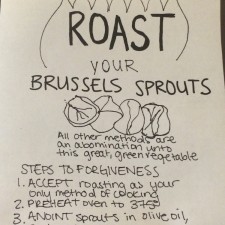 ROAST
YOUR
BRUSSELS SPROUTS
All other methods are
an abomination unto
this great, green vegetable
STEPS TO FORGIVENESS
1. ACCEPT roasting as your
only method of cooking
2. PREHEAT oven to 375°
3. ANOINT sprouts in olive oil,